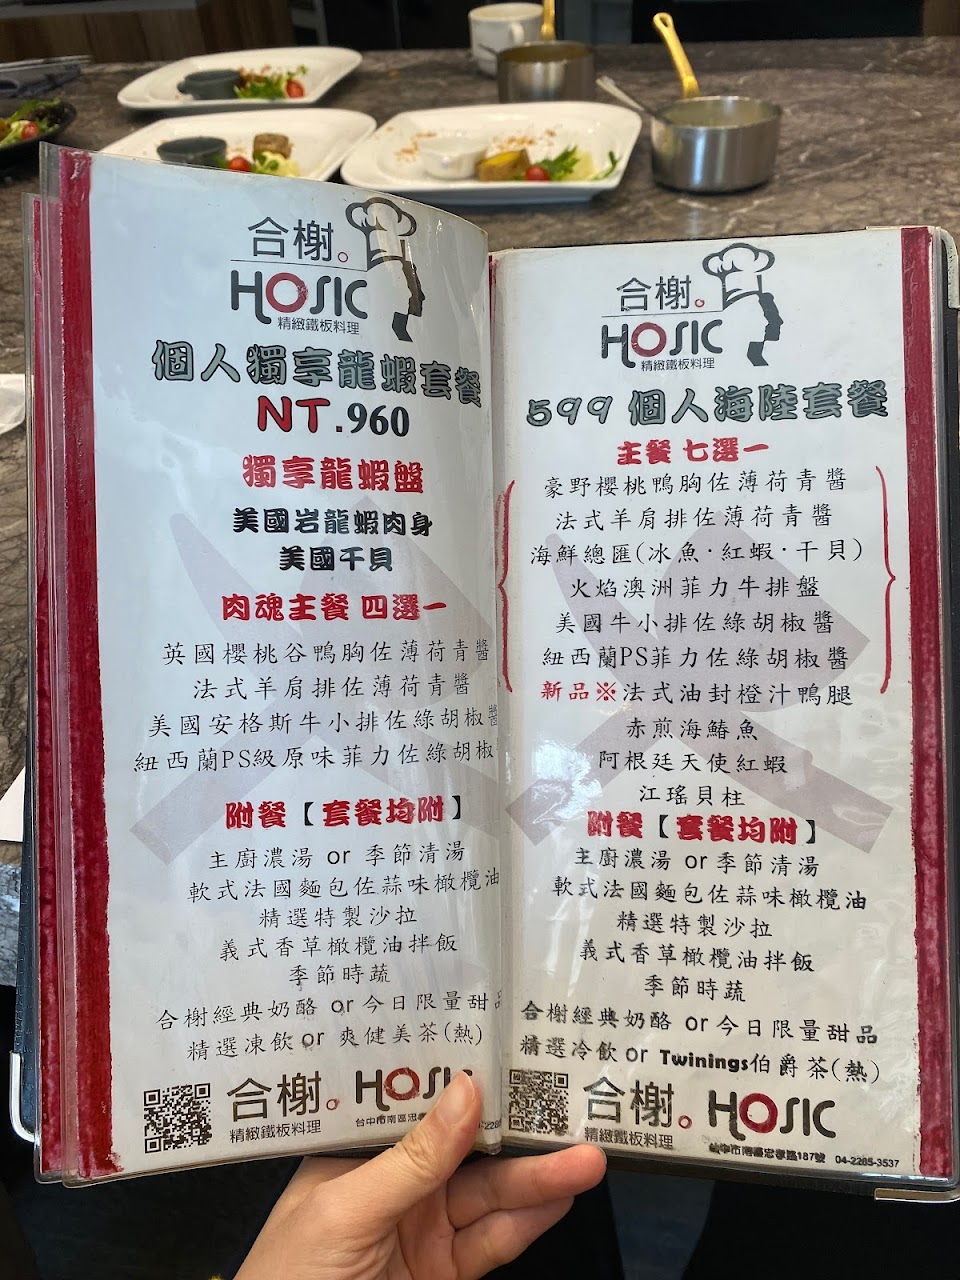 合榭。
HOSIC
精緻鐵板料理
個人獨享龍蝦套餐
NT.960
獨享龍蝦盤
美國岩龍蝦肉身
美國干貝
肉魂主餐 四選一
英國櫻桃谷鴨胸佐薄荷青醬
法式羊肩排佐薄荷青醬
美國安格斯牛小排佐綠胡椒醬
紐西蘭PS級原味菲力佐綠胡椒
附餐【套餐均附】
主廚濃湯 or 季節清湯
軟式法國麵包佐蒜味橄欖油
精選特製沙拉
義式香草橄欖油拌飯
季節時蔬
合榭經典奶酪 or 今日限量甜品
精選凍飲 or 爽健美茶(熱)
合榭。 HOSIC
精緻鐵板料理
台中市南區忠孝
合榭。
HOSIC
精緻鐵板料理
599 個人海陸套餐
主餐 七選一
豪野櫻桃鴨胸佐薄荷青醬
法式羊肩排佐薄荷青醬
海鮮總匯(冰魚·紅蝦·干貝)
火焰澳洲菲力牛排盤
美國牛小排佐綠胡椒醬
紐西蘭PS菲力佐綠胡椒醬
新品※法式油封橙汁鴨腿
赤煎海鱺魚
阿根廷天使紅蝦
江瑤貝柱
附餐【套餐均附】
主廚濃湯 or 季節清湯
軟式法國麵包佐蒜味橄欖油
精選特製沙拉
義式香草橄欖油拌飯
季節時蔬
合榭經典奶酪 or 今日限量甜品
精選冷飲 or Twinings伯爵茶(熱)
合榭。 HOSIC
精緻鐵板料理
台中市南區忠孝路187號 04-2285-3537